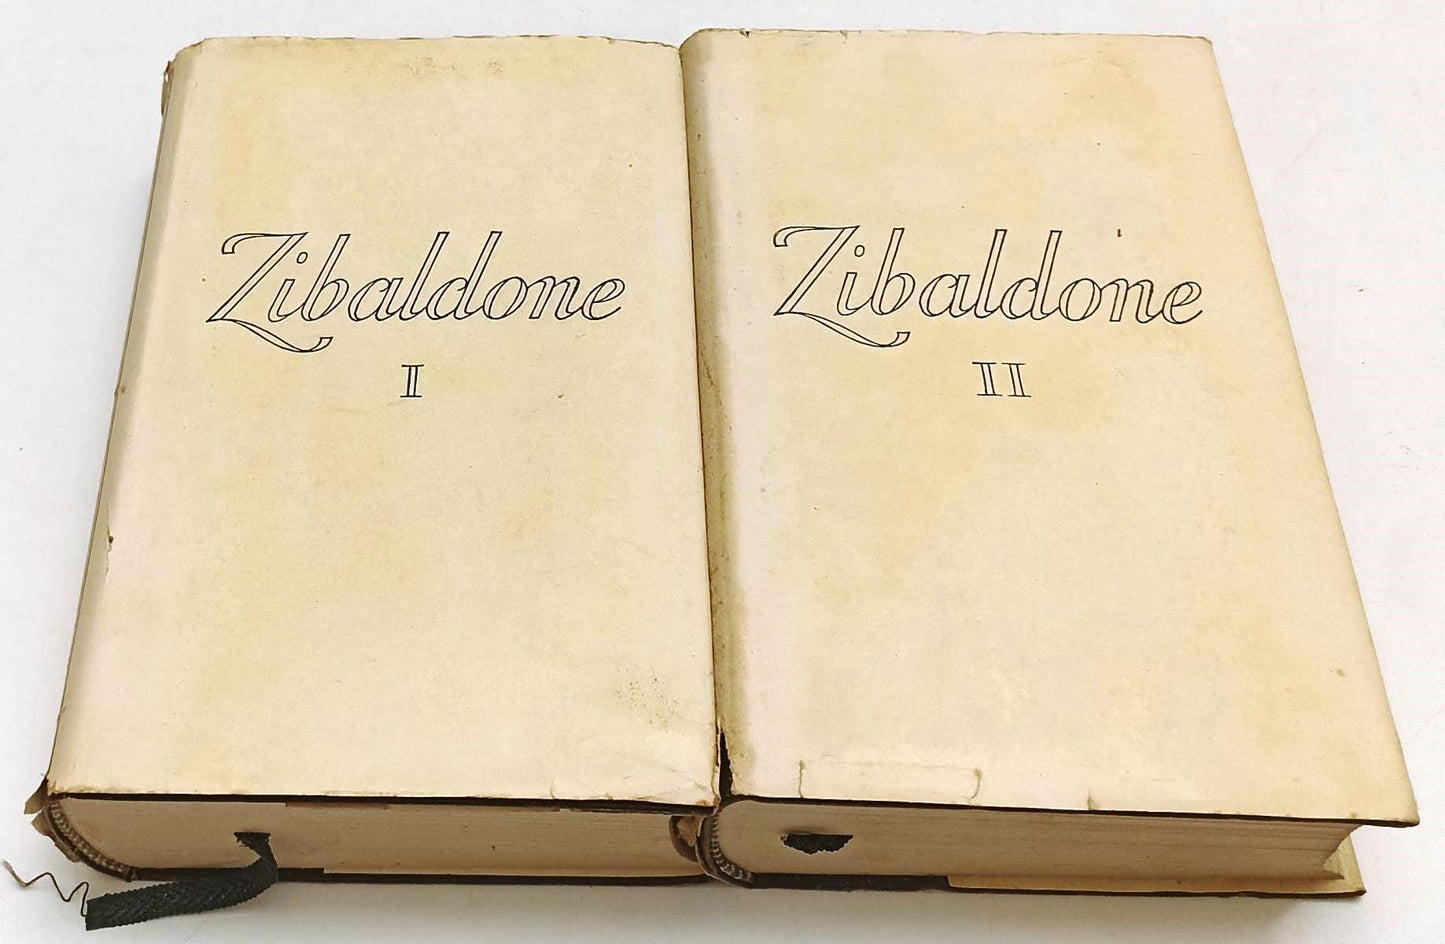 Zibaldone
I
Zibaldone
II